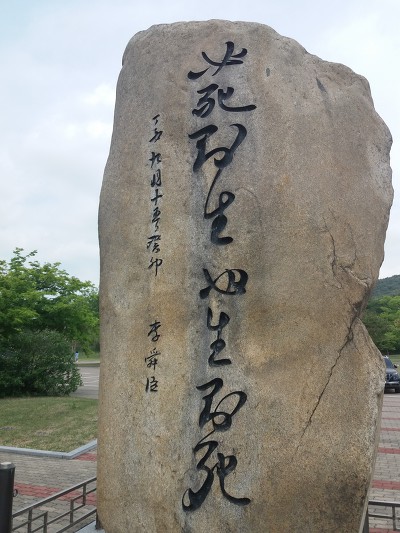 必死則生 必生則死
丁酉九月十五日癸卯 李舜臣